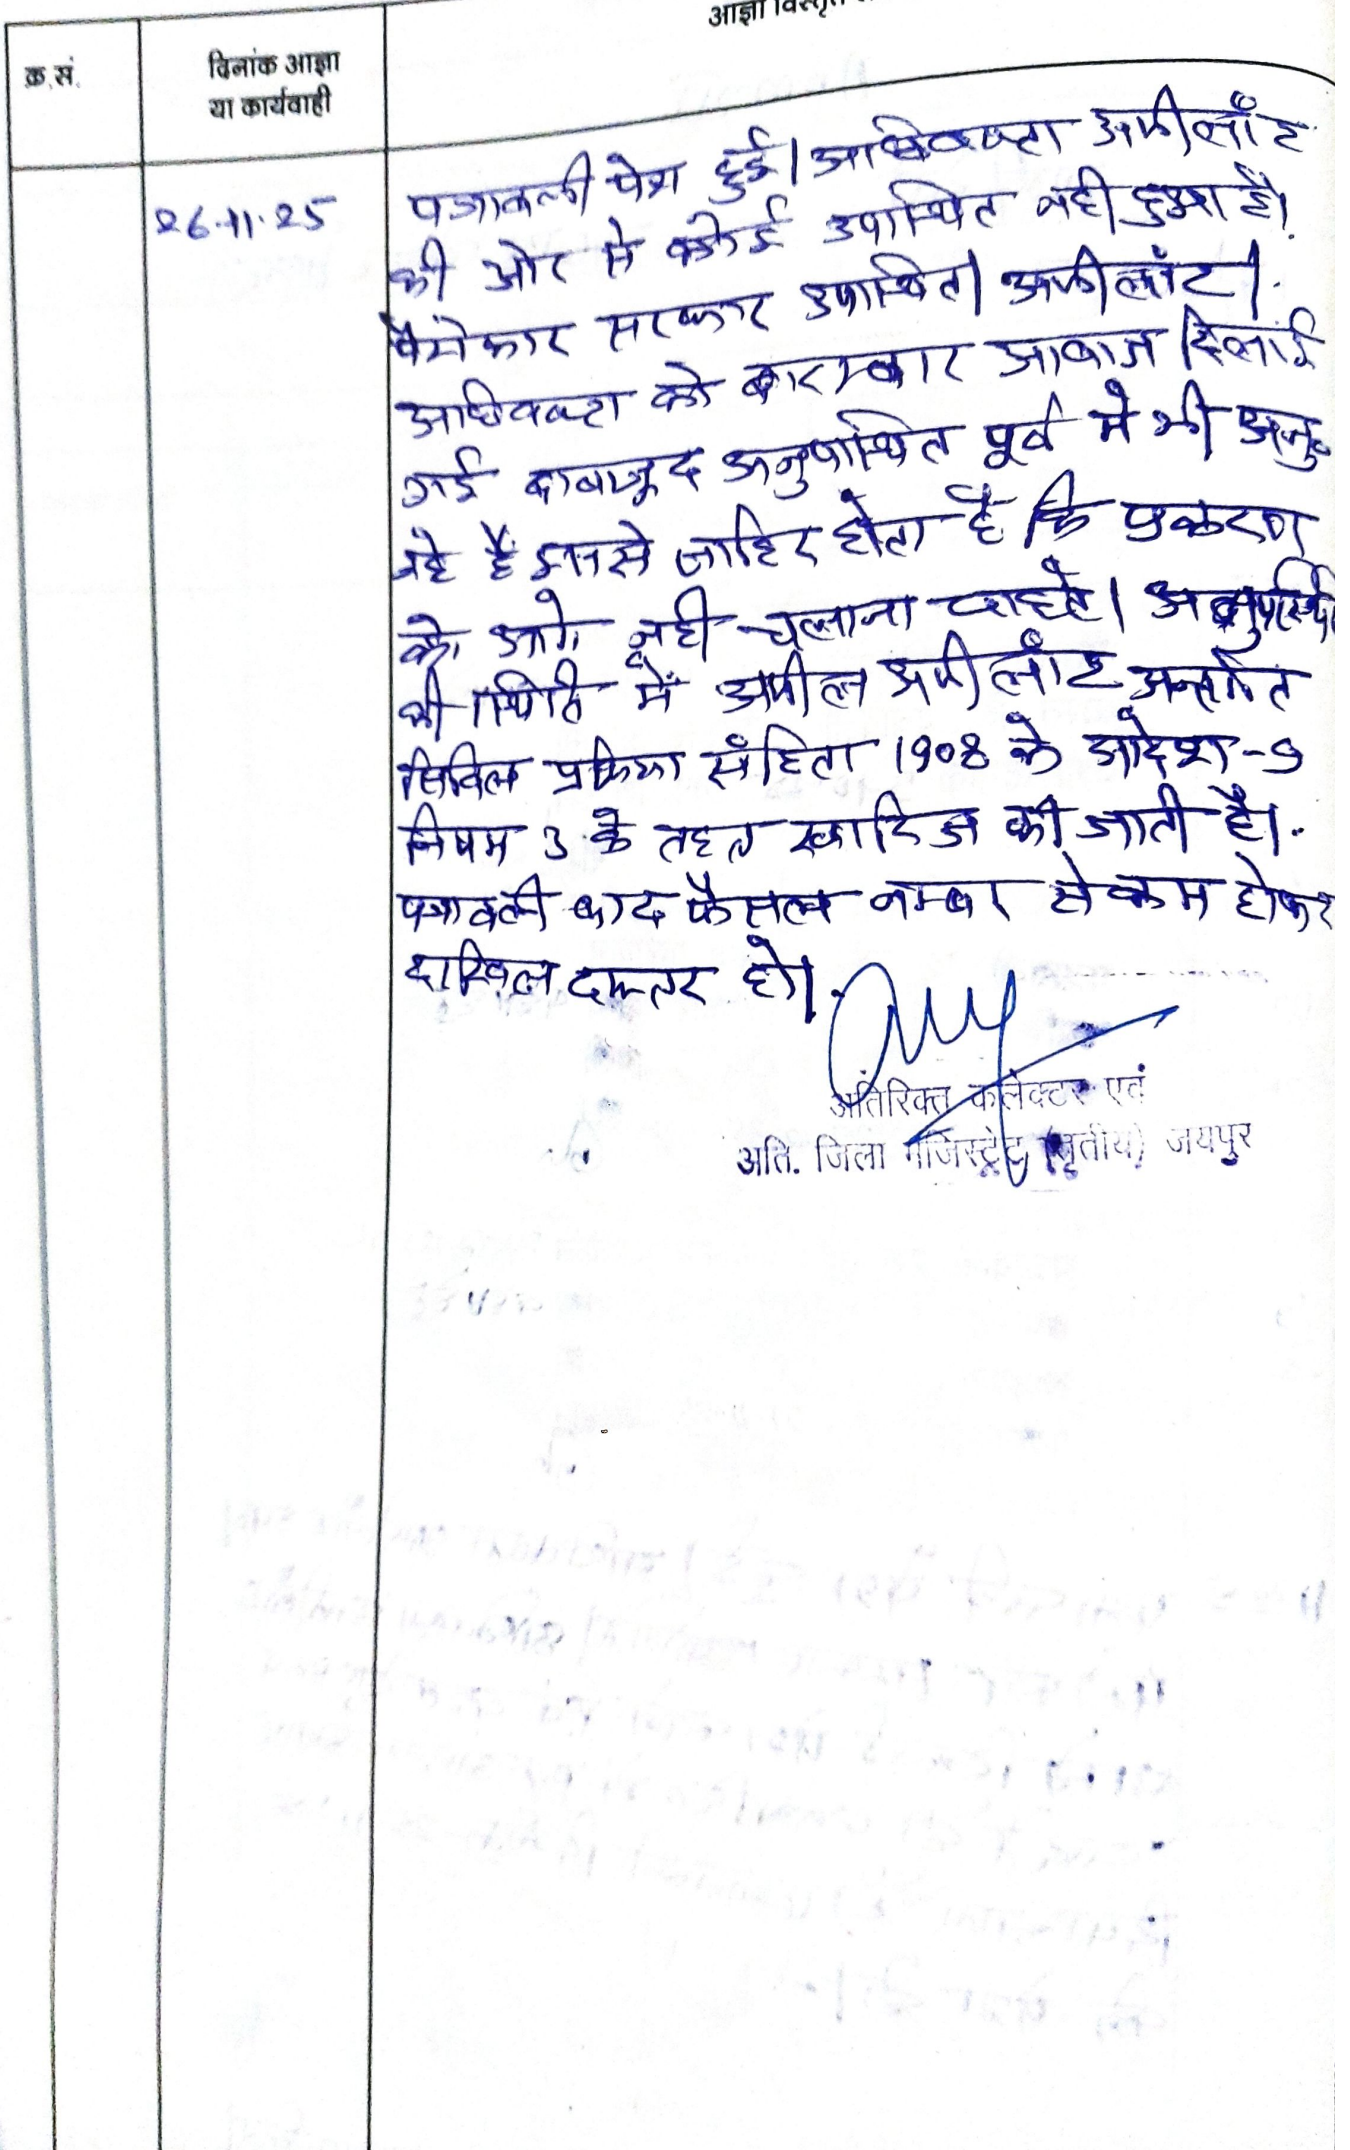 आज्ञा विस्तृत
क्र.सं.
दिनांक आज्ञा
या कार्यवाही
26.11.25
पत्रावली पेश हुई। अधिवक्ता अपीलाँट
की ओर से कोई उपस्थित नही हुआ है।
पैरोकार सरकार उपस्थित। अपीलांट।
अधिवक्ता को बारम्बार आवाज दिलाई
गई बावाजूद अनुपस्थित पूर्व मे भी अनु.
रहे है इससे जाहिर होता है कि प्रकरण
को आगे नही चलाना चाहते। अनुपस्थि
की स्थिति में अपील अपीलांट अन्तर्गत
सिविल प्रक्रिया संहिता 1908 के आदेश-9
नियम 3 के तहत खारिज की जाती है।
पत्रावली बाद फैसल नम्बर से कम होकर
दाखिल दफ्तर हो।
अतिरिक्त कलेक्टर एवं
अति. जिला मजिस्ट्रेट (तृतीय) जयपुर